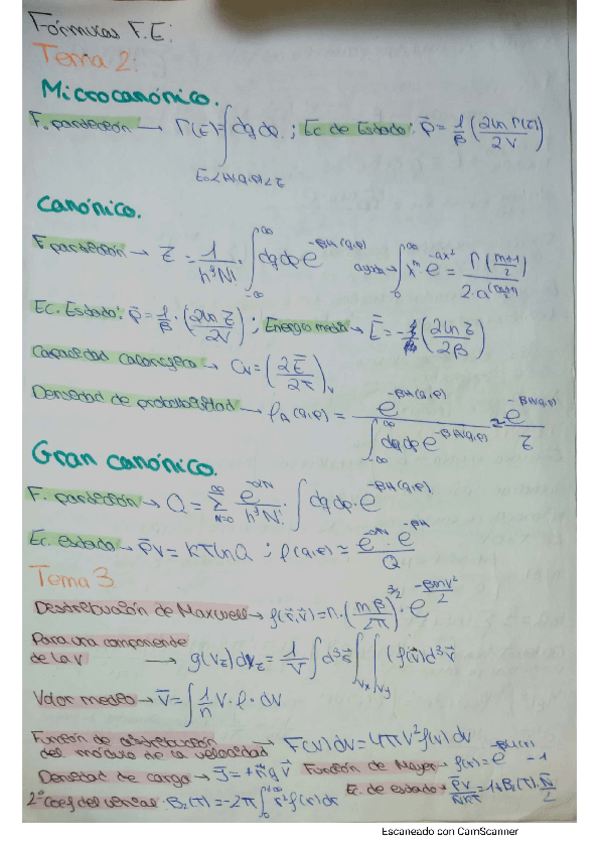 Fórmulas F.E:
Tema 2:
Microcanónico.
F. partición → Γ(E)=∫dqdp ; Ec de Estado: P̄=1/β (∂ln Γ(E)/∂V)
E₀<H(q,p)<E
Canónico.
F partición → Z = 1/h^gN! · ∫_{-∞}^{∞} dqdp e^{-βH(q,p)} ayuda → ∫_0^∞ x^m e^{-ax²} = Γ(m+1/2)/2·a
Ec. Estado: P̄=1/β · (∂ln Z/∂V) ; Energía media → Ē = -(∂ln Z/∂β)
Capacidad calorífica → Cv = (∂Ē/∂T)_V
Densidad de probabilidad → ρ_A(q,p) = e^{-βH(q,p)} / ∫_{-∞}^{∞} dqdp e^{-βH(q,p)} = e^{-βH(q,p)}/Z
Gran canónico.
F. partición → Q = Σ_{N=0}^{∞} e^{-αN}/h^gN! · ∫ dqdp · e^{-βH(q,p)}
Ec. estado → P̄V = kT ln Q ; ρ(q,p) = e^{-αN} · e^{-βH}/Q
Tema 3
Distribución de Maxwell → f(r⃗,v⃗) = n · (mβ/2π)^{3/2} · e^{-βmv²/2}
Para una componente
de la v → g(v_z)dv_z = 1/V ∫d³r⃗ ∫_{v_x}∫_{v_y} (f(v⃗)d³v⃗
Valor medio → V̄ = ∫ 1/n V · f · dV
Función de distribución
del módulo de la velocidad → F(v)dv = 4πv²f(v)dv
Densidad de carga → J⃗ = +n̄qv̄ Función de Mayer → f(r) = e -1
2º Coef del virial · B₂(T) = -2π∫_0^∞ r²f(r)dr Ec. de estado → P̄V/N̄KT = 1+B₂(T)·N̄/2
Escaneado con CamScanner